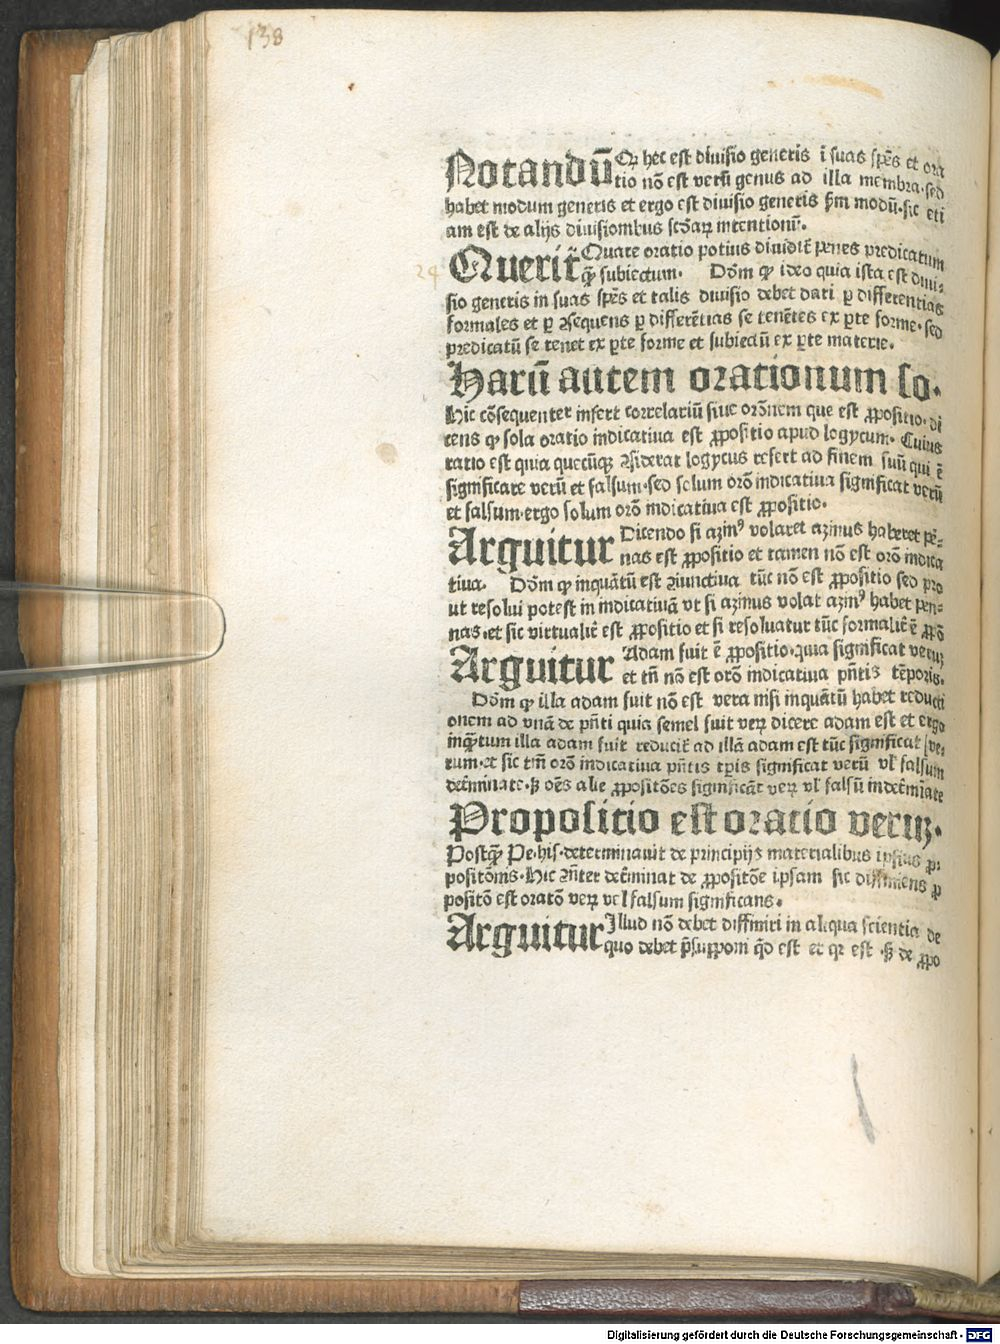 138
Notandū Qꝛ hec est diuisio generis ī suas spēs et ora
tio nō est verū genus ad illa membra·sed
habet modum generis et ergo est diuisio generis ẜm modū·sic eti
am est de alijs diuisionibus scd̄aꝝ intentionū·
24 Querit̄ Quare oratio potius diuidit̄ penes predicatum
ꝙ̄ subiectum· Dōm ꝙ ideo quia ista est diui-
sio generis in suas spēs et talis diuisio debet dari ꝑ differentias
formales et ꝑ ꝯsequens ꝑ differētias se tenētes ex ꝑte forme·sed
predicatū se tenet ex ꝑte forme et subiectū ex ꝑte materie·
Harū autem orationum so·
Hic cōsequenter infert correlariū siue orōnem que est ꝓpositio·di
cens ꝙ sola oratio indicatiua est ꝓpositio apud logycum· Cuius
ratio est quia quecūqꝫ ꝯsiderat logycus refert ad finem suū qui ē
significare verū et falsum·sed solum orō indicatiua significat verū
et falsum·ergo solum orō indicatiua est ꝓpositio·
Arguitur Dicendo si azinꝰ volaret azinus haberet pē-
nas est ꝓpositio et tamen nō est orō indica
tiua· Dōm ꝙ inquātū est ꝯiunctiua tūc nō est ꝓpositio sed pro
ut resolui potest in indicatiuā vt si azinus volat azinꝰ habet pen-
nas·et sic virtualit̄ est ꝓpositio et si resoluatur tūc formalit̄ ē ꝓpō
Arguitur Adam fuit ē ꝓpositio·quia significat veruꝫ
et tn̄ nō est orō indicatiua pn̄tis tēporis·
Dōm ꝙ illa adam fuit nō est vera nisi inquātū habet reducti
onem ad vnā de pn̄ti quia semel fuit veꝝ dicere adam est et ergo
inꝙ̄tum illa adam fuit reducit̄ ad illā adam est tūc significat ve-
rum·et sic tm̄ orō indicatiua pn̄tis tꝑis significat verū vl̓ falsum
det̄minate·ꝫ oēs alie ꝓpositōes significāt veꝝ vl̓ falsū indet̄miate
Propositio est oratio veruꝫ·
Postꝙ̄ Pe·his·determinauit de principijs materialibus ipsius ꝓ·
positōnis·Hic ꝯn̄ter det̄minat de ꝓpositōe ipsam sic diffiniens ꝓ
positō est oratō veꝝ vel falsum significans·
Arguitur Illud nō debet diffiniri in aliqua scientia de
quo debet p̄supponi qd̄ est et qꝛ est ·ꝫ de ꝓpo
Digitalisierung gefördert durch die Deutsche Forschungsgemeinschaft - DFG